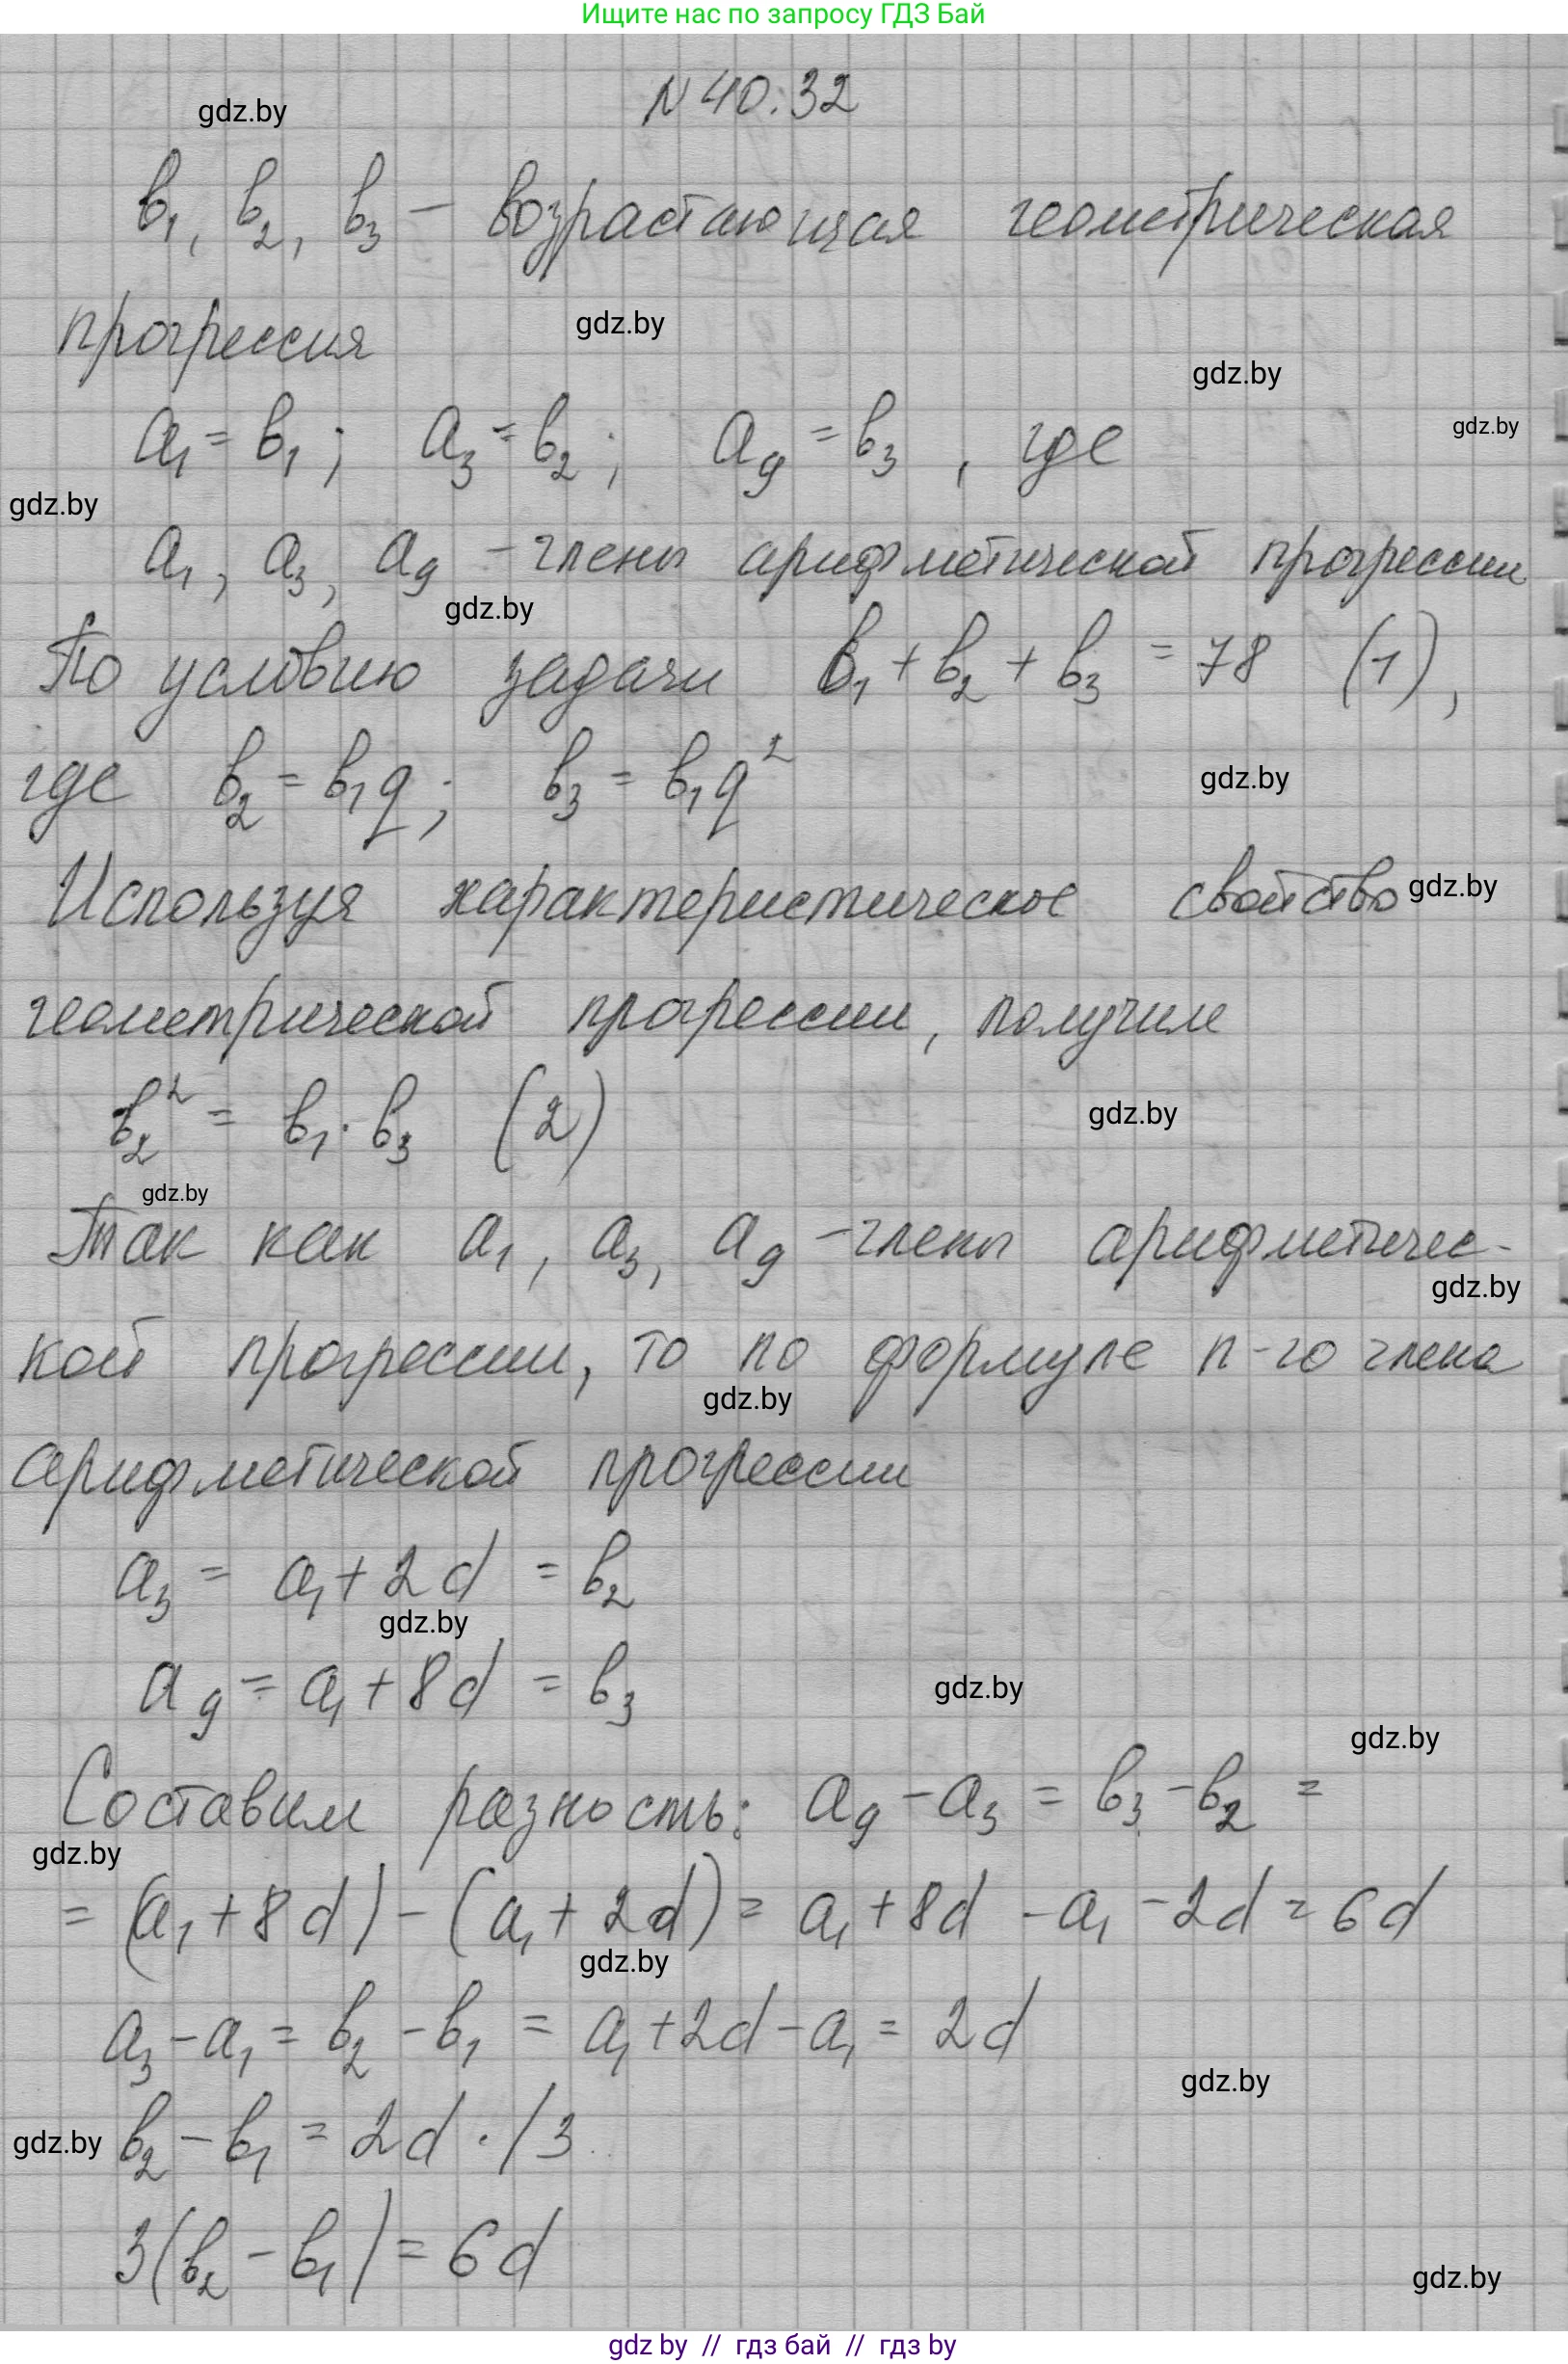 Ищите нас по запросу ГДЗ Бай
N 40.32
gdz.by
b₁, b₂, b₃ – возрастающая геометрическая
прогрессия
gdz.by
gdz.by
a₁ = b₁; a₃ = b₂; a₉ = b₃, где
gdz.by
gdz.by
a₁, a₃, a₉ – члены арифметической прогрессии
gdz.by
По условию задачи b₁ + b₂ + b₃ = 78 (1),
где b₂ = b₁q; b₃ = b₁q²
gdz.by
Используя характеристическое свойство
gdz.by
геометрической прогрессии, получим
b₂² = b₁ · b₃ (2)
gdz.by
gdz.by
Так как a₁, a₃, a₉ – члены арифметичес-
gdz.by
кой прогрессии, то по формуле n-го члена
gdz.by
арифметической прогрессии
a₃ = a₁ + 2d = b₂
gdz.by
a₉ = a₁ + 8d = b₃
gdz.by
gdz.by
Составим разность: a₉ – a₃ = b₃ – b₂ =
gdz.by
= (a₁ + 8d) – (a₁ + 2d) = a₁ + 8d – a₁ – 2d = 6d
gdz.by
a₃ – a₁ = b₂ – b₁ = a₁ + 2d – a₁ = 2d
gdz.by
gdz.by
b₂ – b₁ = 2d ·/3
3(b₂ – b₁) = 6d
gdz.by
gdz by // гдз бай // гдз by